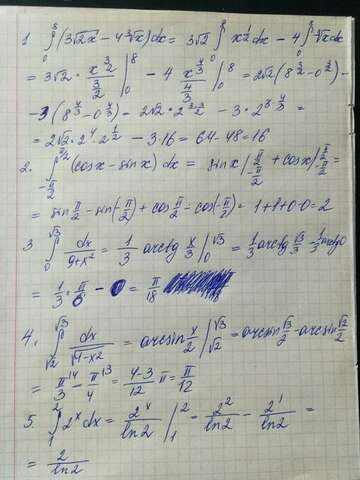 1 ∫₀⁸ (3√2x - 4∛x)dx = 3√2 ∫₀⁸ x^½ dx - 4 ∫₀⁸ ∛x dx
= 3√2 · x^(3/2) / (3/2) |₀⁸ - 4 x^(4/3) / (4/3) |₀⁸ = 2√2 (8^(3/2) - 0^(3/2)) -
- 3 (8^(4/3) - 0^(4/3)) = 2√2 · 2^(3·3/2) - 3 · 2^(3·4/3) =
= 2√2 · 2⁴ · 2^(1/2) - 3·16 = 64 - 48 = 16
2. ∫_(-π/2)^(π/2) (cosx - sinx) dx = sinx |_(-π/2)^(π/2) + cosx |_(-π/2)^(π/2) =
= sin π/2 - sin(-π/2) + cos π/2 - cos(-π/2) = 1+1+0-0=2
3 ∫₀^√3 dx/(9+x²) = 1/3 arctg x/3 |₀^√3 = 1/3 arctg √3/3 - 1/3 arctg 0
= 1/3 · π/6 - 0 = π/18
4. ∫_√2^√3 dx/√(4-x²) = arcsin x/2 |_√2^√3 = arcsin √3/2 - arcsin √2/2
= π/3 - π/4 = (4-3)/12 π = π/12
5. ∫₁² 2ˣ dx = 2ˣ/ln2 |₁² = 2²/ln2 - 2¹/ln2 =
= 2/ln2